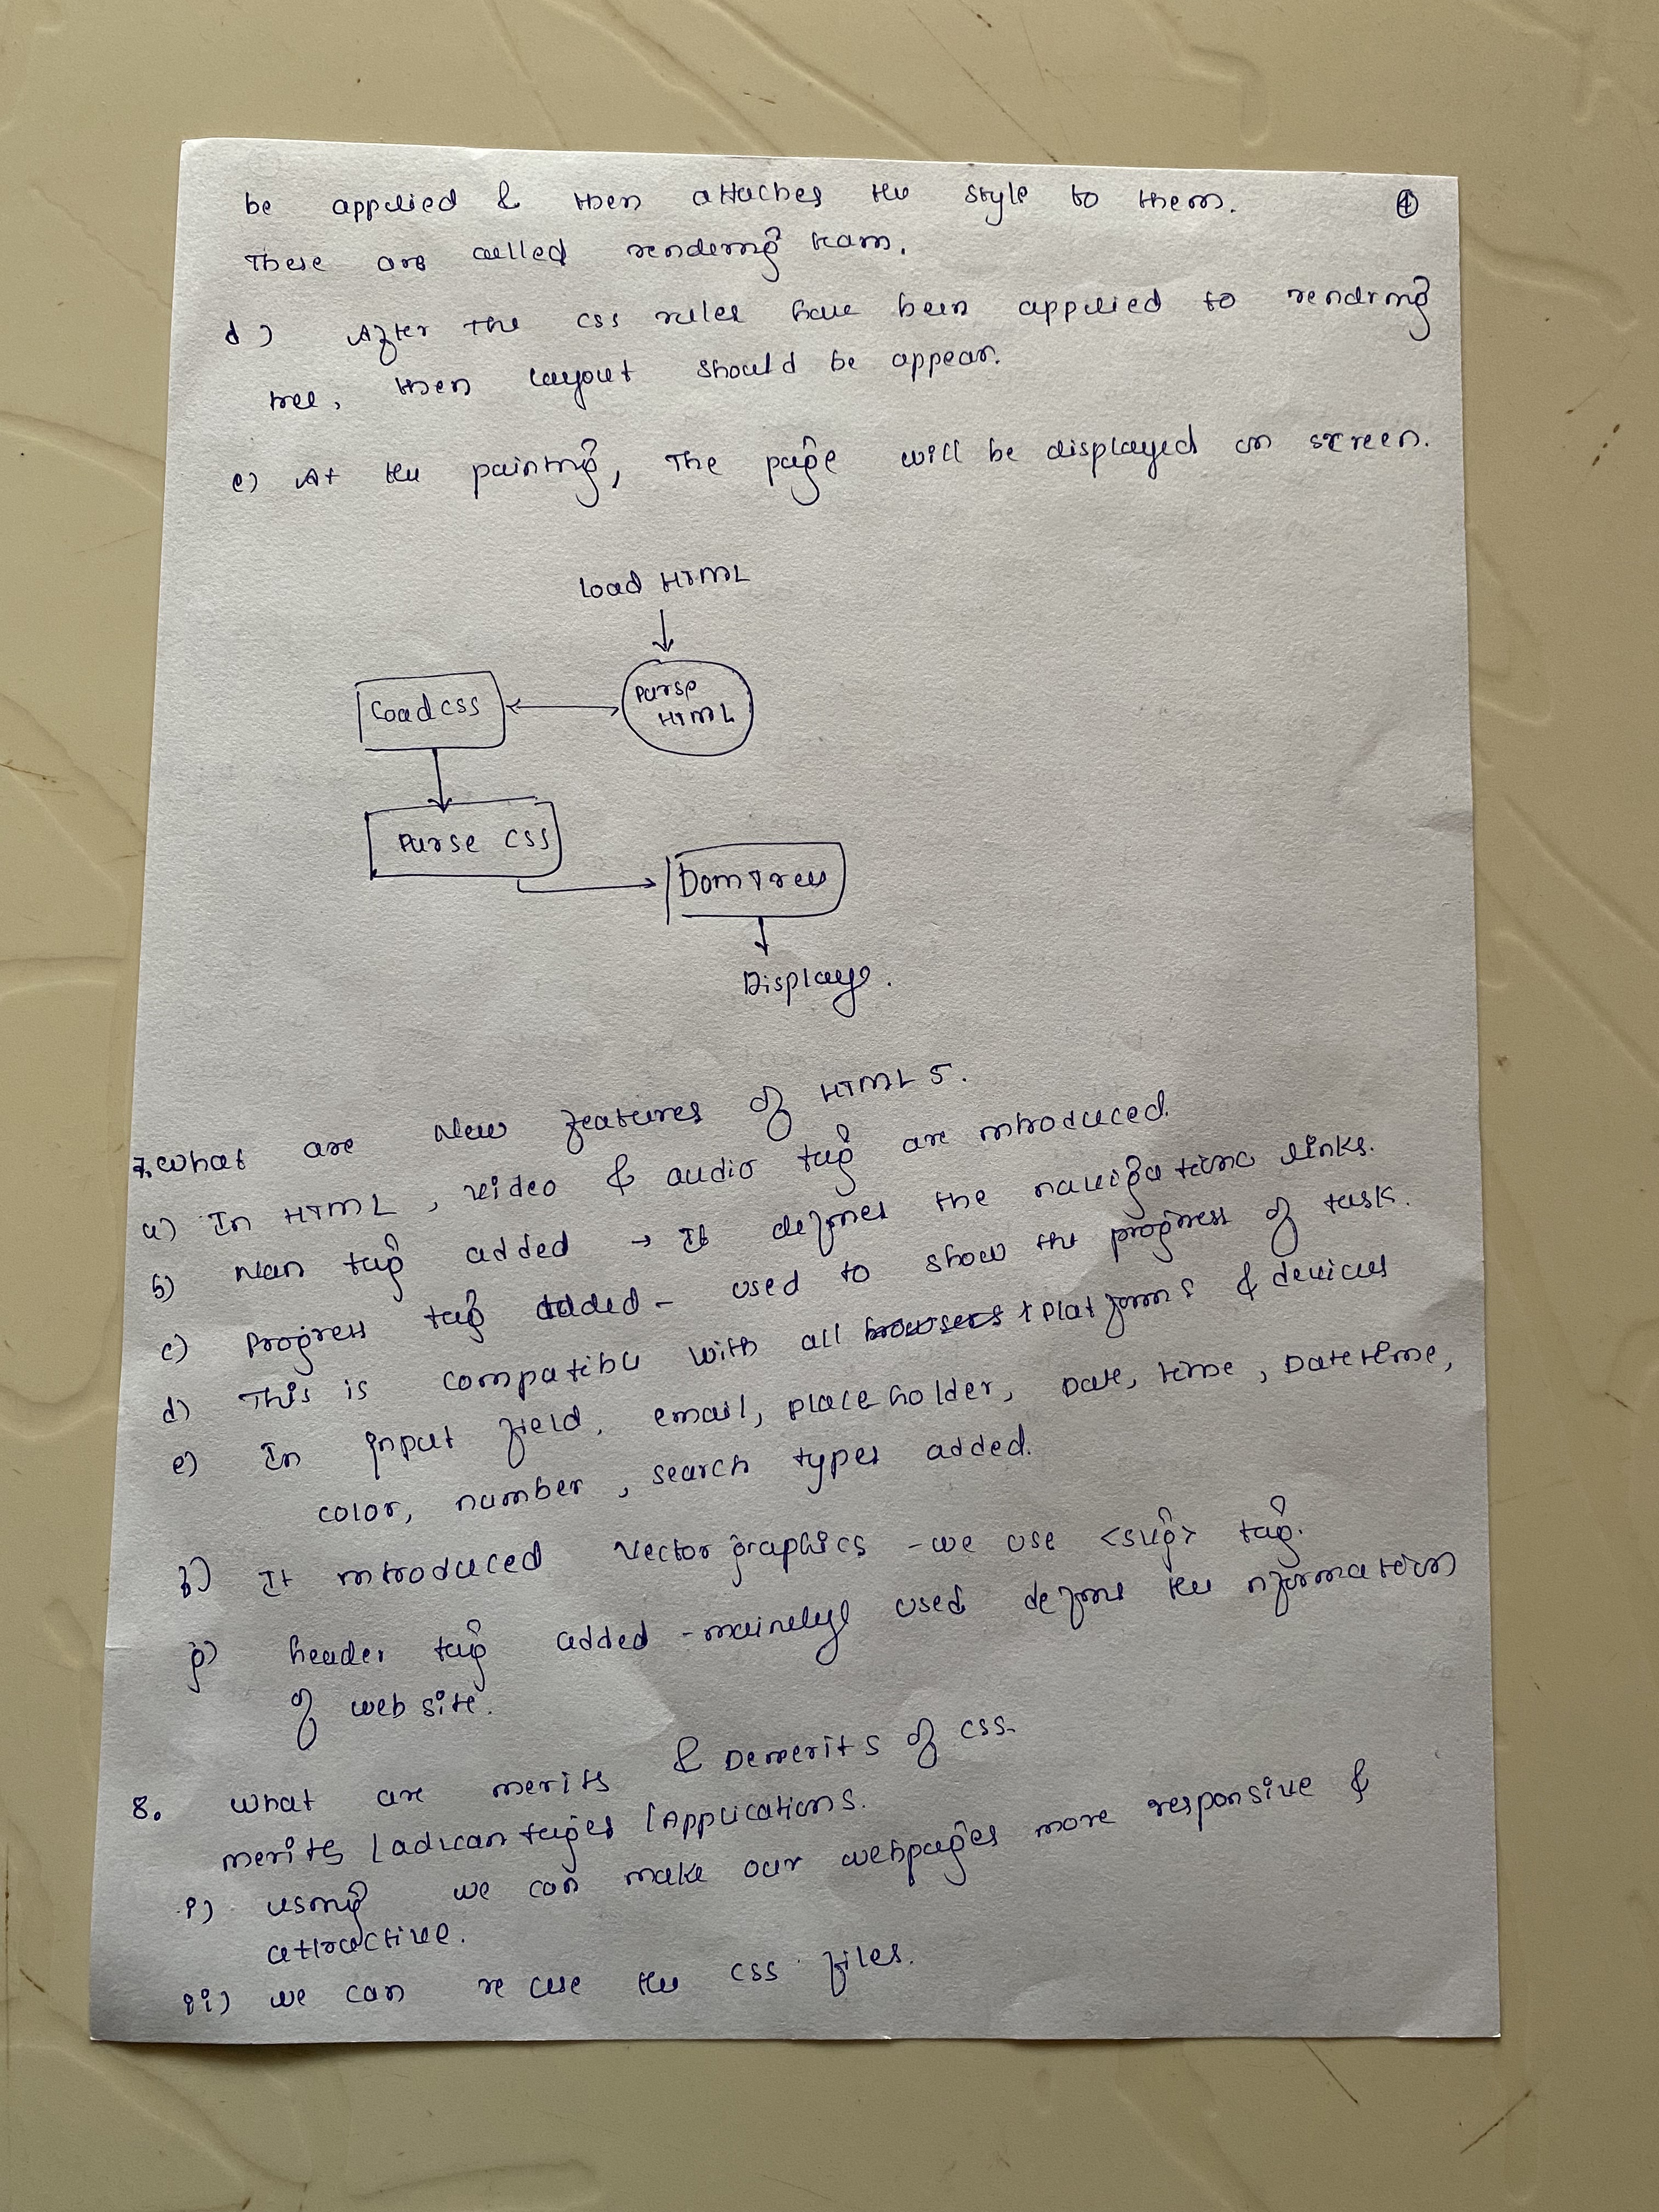 be applied & then attaches the style to them. ④
These are called rendering team.
d) After the css rules have been applied to rendring
tree, then layout should be appear.
e) At the painting, The page will be displayed on screen.
Load HTML
Load css
Parse HTML
Parse CSS
Dom Tree
Display.
7. What are New features of HTML 5.
a) In HTML, video & audio tag are introduced.
b) Nan tag added → It defines the navigationa links.
c) Progress tag added - used to show the progress of task.
d) This is compatible with all browsers & platforms & devices
e) In input field, email, place holder, Date, time, Datetime,
color, number, search types added.
f) It introduced vector graphics - we use <svg> tag.
g) header tag added - mainely used define the nformation
of web site.
8. What are merits & Demerits of CSS.
merits / advantages / Applications.
i) using we can make our webpages more responsive &
attractive.
ii) we can re use the css files.